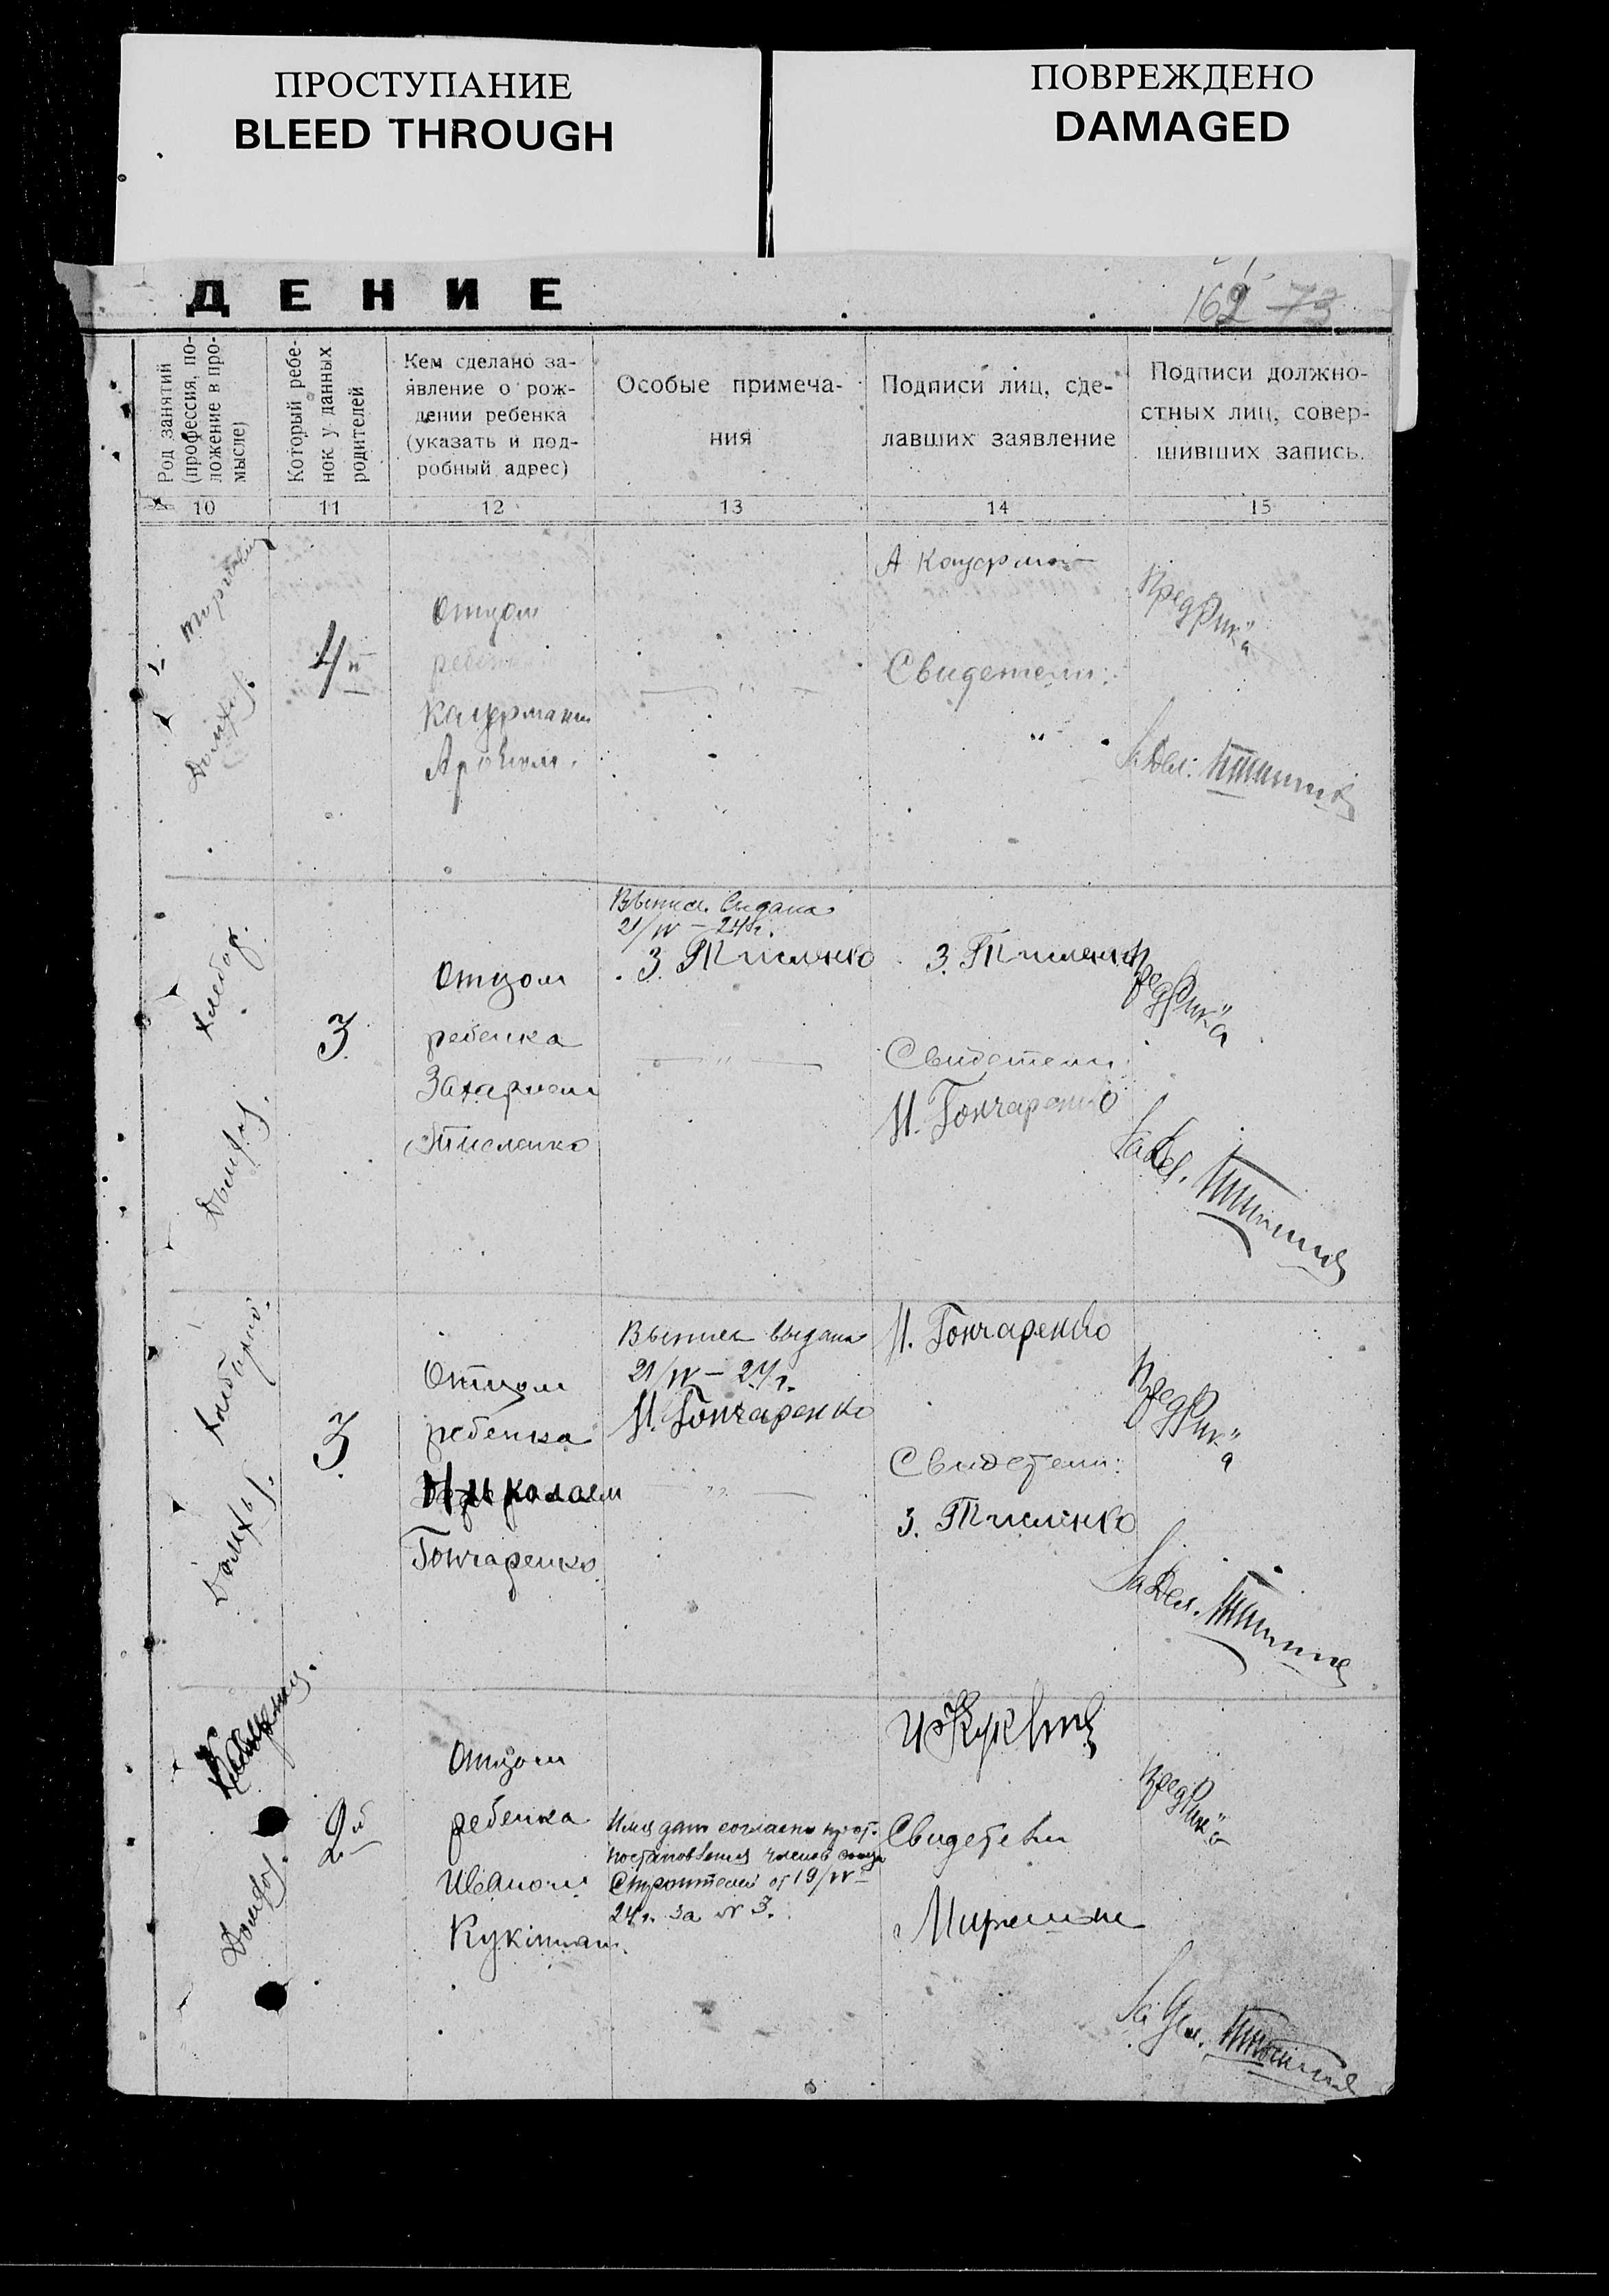 ПРОСТУПАНИЕ
BLEED THROUGH
ПОВРЕЖДЕНО
DAMAGED
ДЕНИЕ
162 73
Род занятий
(профессия, по-
ложение в про-
мысле)
Который ребе-
нок у данных
родителей
Кем сделано за-
явление о рож-
дении ребенка
(указать и под-
робный адрес)
Особые примеча-
ния
Подписи лиц, сде-
лавших заявление
Подписи должно-
стных лиц, совер-
шивших запись.
10
11
12
13
14
15
Домхоз.
4й
Отцом
ребенка
Кауфманом
Ароном.
А Кауфман
Свидетели:
Предрик'а
Задел.
Хлебор.
Домхоз.
3
Отцом
ребенка
Захарием
Тисленко
Выписк. выдана
21/IV - 24 г.
З. Тисленко
З. Тисленко
Свидетели
Н. Гончаренко
Предрик'а
Задел.
Домхоз.
3
Отцом
ребенка
Николаем
Гончаренко
Выписк выдана
21/IV - 24 г.
Н. Гончаренко
Н. Гончаренко
Свидетели:
З. Тисленко
Предрик'а
Задел.
Домхоз.
2й
Отцом
ребенка
Иваном
Имя дано согласно прот.
постановления членов союза
Строителей от 19/IV
24 г. за № 3.
Свидетели
Предрик'а
За Дел.